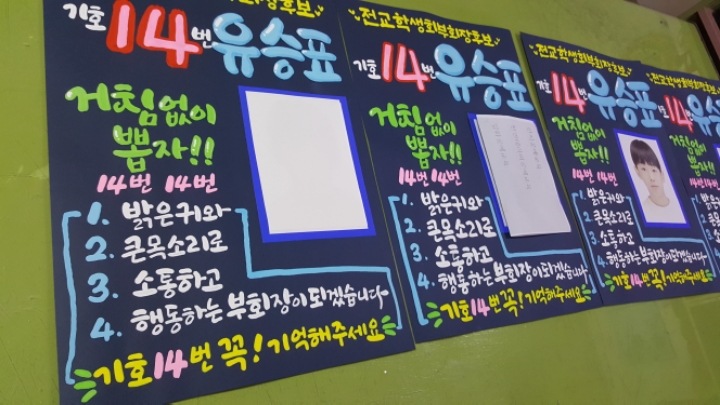 전교학생회부회장후보
기호14번 유승표
거침없이
뽑자!!
14번 14번
1. 밝은귀와
2. 큰목소리로
3. 소통하고
4. 행동하는 부회장이 되겠습니다~
기호14번 꼭! 기억해주세요
전교학생회부회장후보
기호14번 유승표
거침없이
뽑자!!
14번 14번
1. 밝은귀와
2. 큰목소리로
3. 소통하고
4. 행동하는 부회장이되겠습니다~
기호14번 꼭! 기억해주세요
전교학생회부회장후보
기호14번 유승표
거침없이
뽑자!!
14번 14번
1. 밝은귀와
2. 큰목소리로
3. 소통하고
4. 행동하는 부회장이되겠습니다
기호14번 꼭! 기억해주세요
전교학생회부회장후보
기호14번 유승
거침없이
뽑자!!
14번 14번
1. 밝은귀와
2. 큰목소리
3. 소통하고
4. 행동하는